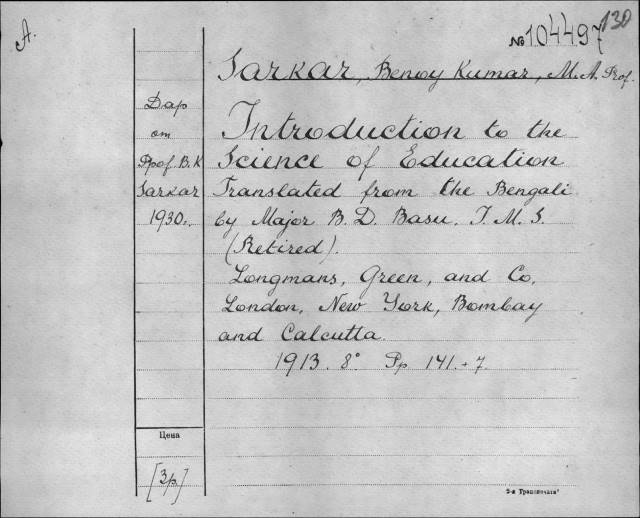 A.
№ 104497
130
Sarkar, Benoy Kumar, M.A. Prof.
Дар
от
Ppof. B. K
Sarkar
1930г.
Introduction to the
Science of Education
Translated from the Bengali
by Major B. D. Basu. I. M. S.
(Retired).
Longmans, Green, and Co.
London, New York, Bombay
and Calcutta.
1913. 8° Pp 141.+7.
Цена
[3р.]
2-я Транспечать"